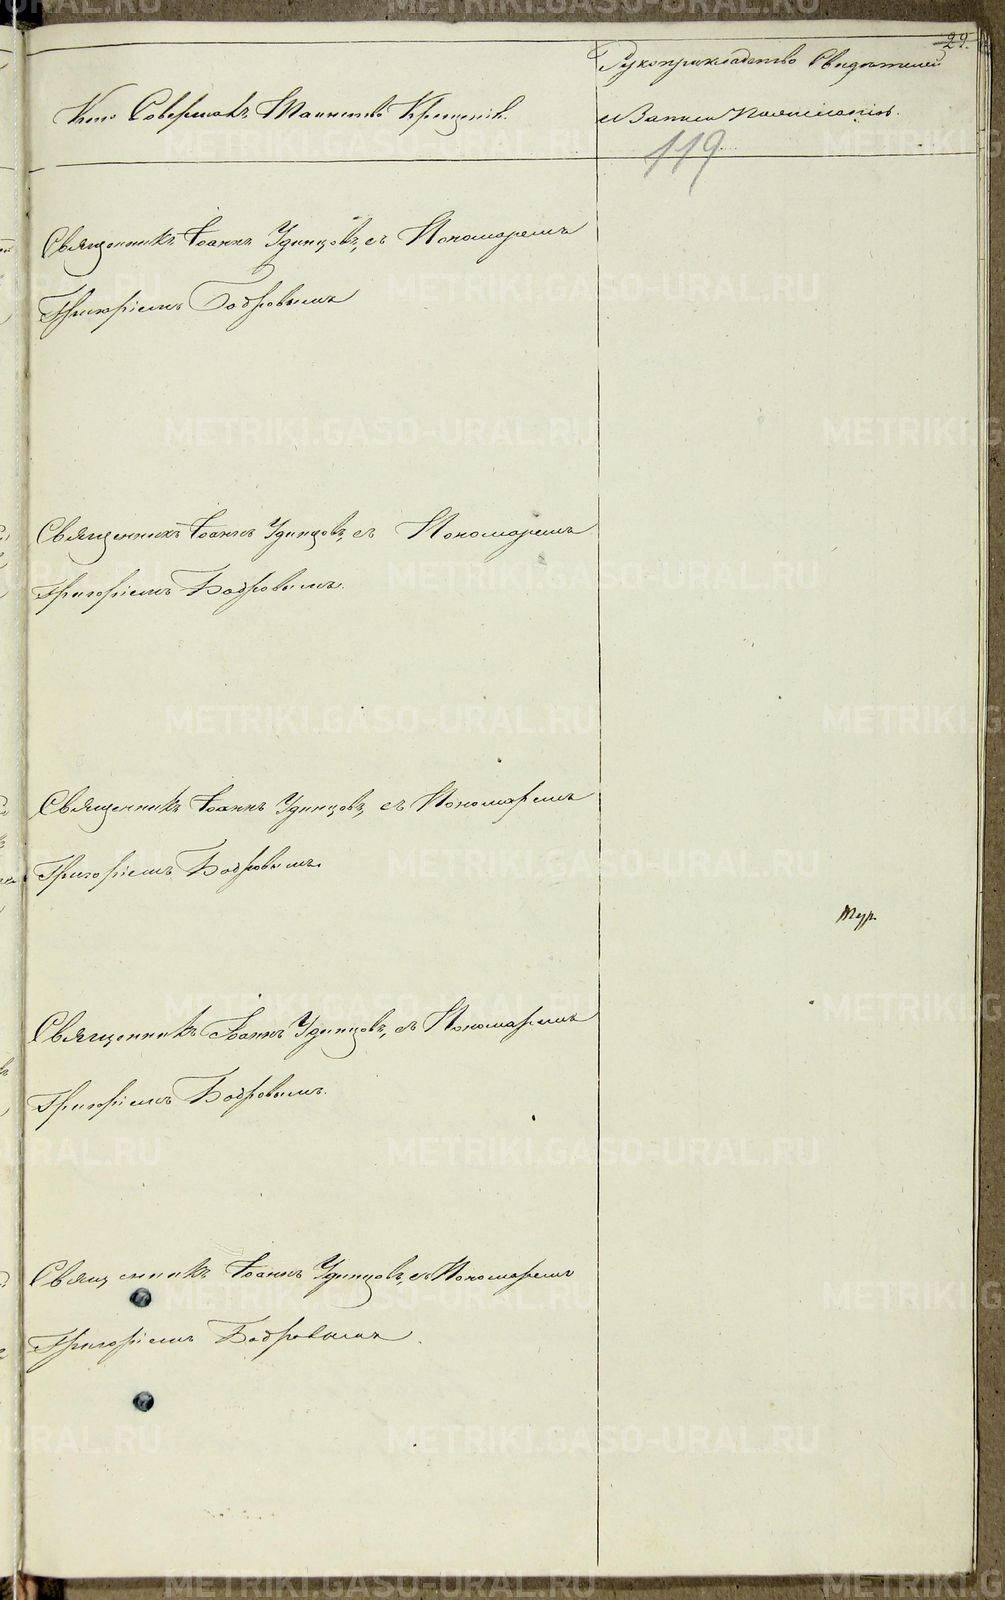 29.
Кто Совершалъ Таинство Крещенія.
Рукоприкладство Свидѣтелей
и Записи по желанію.
119
Священникъ Іоаннъ Удинцовъ, съ Пономаремъ
Григоріемъ Бобровымъ
Священникъ Іоаннъ Удинцовъ, съ Пономаремъ
Григоріемъ Бобровымъ.
Священникъ Іоаннъ Удинцовъ, съ Пономаремъ
Григоріемъ Бобровымъ.
Священникъ Іоаннъ Удинцовъ, съ Пономаремъ
Григоріемъ Бобровымъ.
Священникъ Іоаннъ Удинцовъ, съ Пономаремъ
Григоріемъ Бобровымъ.
METRIKI.GASO-URAL.RU